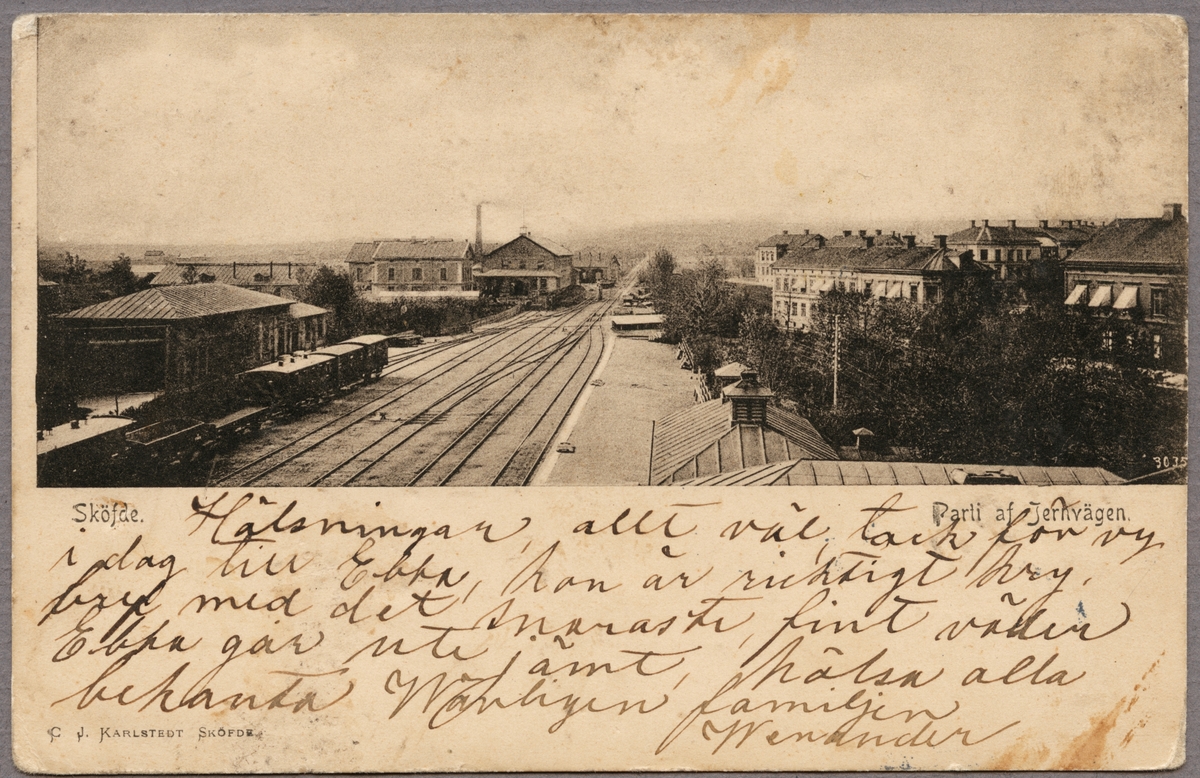 3035
Sköfde.
Parti af Jernvägen.
Hälsningar, allt väl, tack för vy
i dag till Ebba, hon är riktigt kry.
bref med det snaraste, fint väder
Ebba går ute jämt, hälsa alla
bekanta Vänligen familjen
Wenander
C. J. KARLSTEDT SKÖFDE.